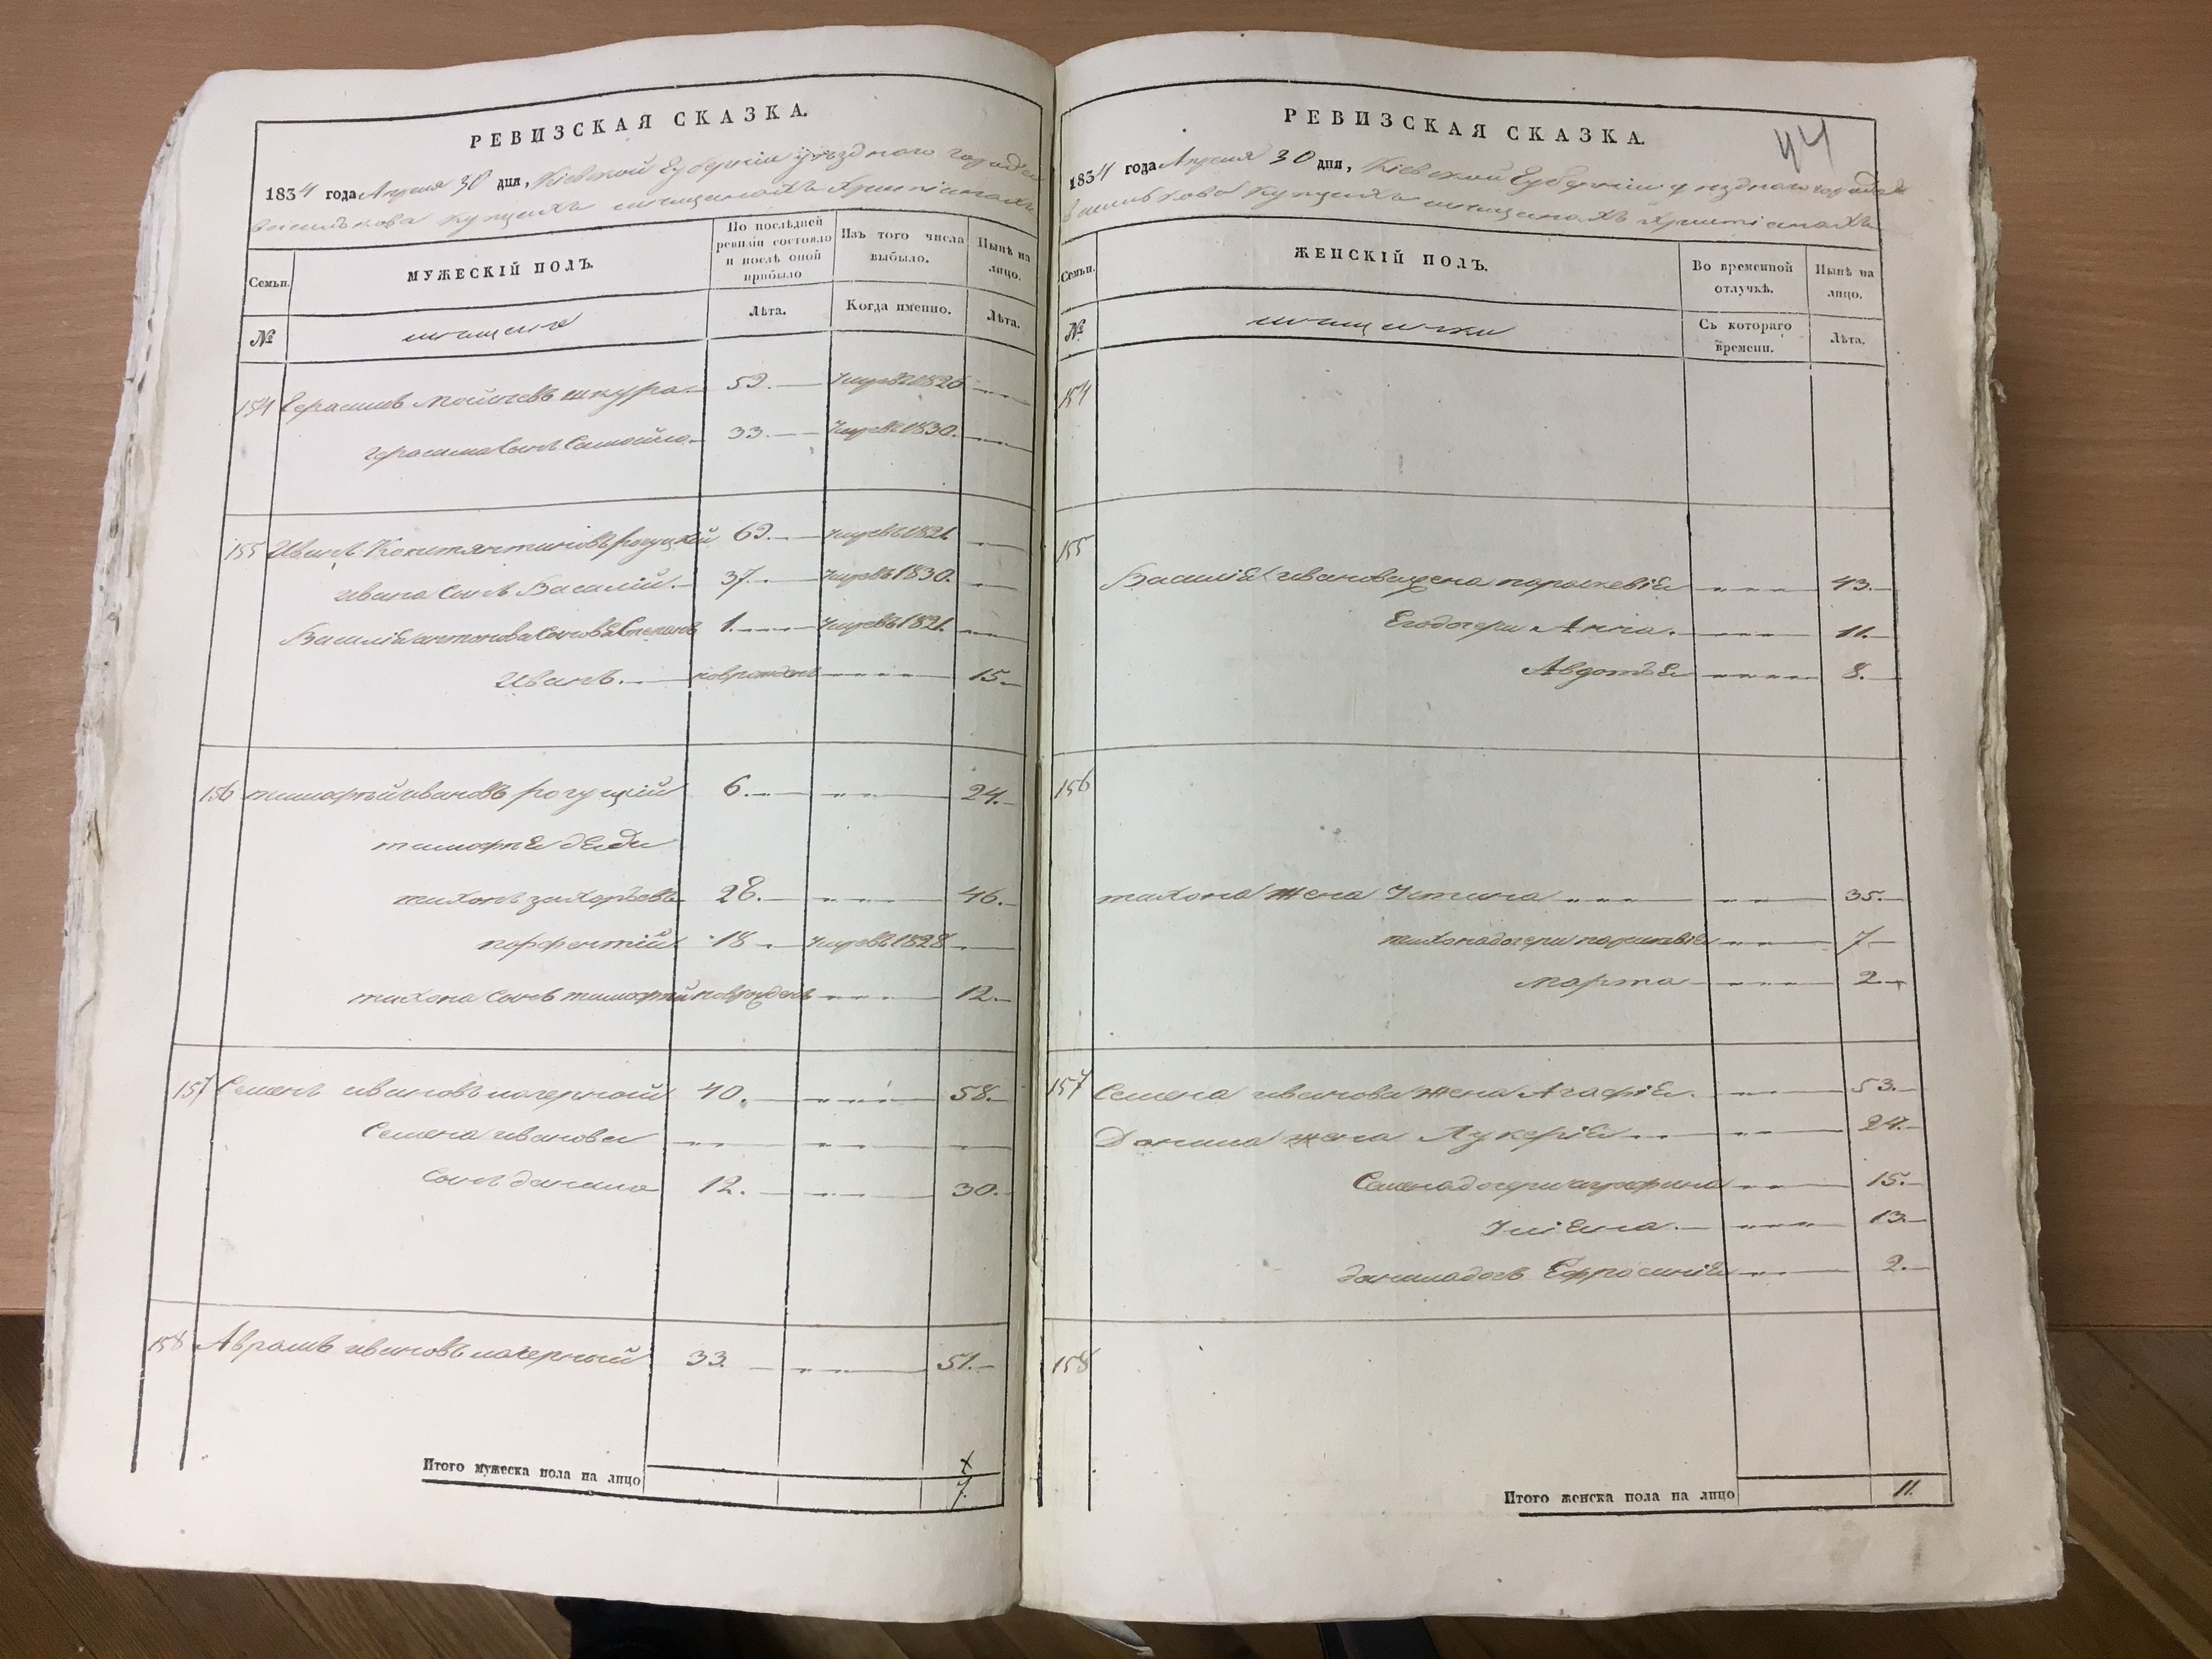 РЕВИЗСКАЯ СКАЗКА.
1834 года Апреля 30 дня, Кіевской Губерніи уѣздного города
Василькова купцахъ мѣщанахъ Христіанахъ
Семьи.
МУЖЕСКІЙ ПОЛЪ.
По послѣдней ревизіи состояло и послѣ оной прибыло
Изъ того числа выбыло.
Нынѣ на лицо.
№
мещане
Лѣта.
Когда именно.
Лѣта.
154 Герасимъ Мойсеевъ шкура 59. умревъ 1826
герасима Сынъ Самойло 33. умревъ 1830.
155 Иванъ Константиновъ рогуцкій 69. умревъ 1821.
ивана Сынъ Василій. 37. умревъ 1830.
Василія Сыновья Степанъ 1. умревъ 1821.
Иванъ. новрожденъ 15.
156 тимофей ивановъ рогуцкій 6. 24.
тимофея дяди
тихонъ захарьевъ 28. 46.
порфентій 18. умревъ 1828
тихона Сынъ тимофтей новрожденъ 12.
157 Семенъ ивановъ 40. 58.
Семена иванова
Сынъ данило 12. 30.
158 Аврамъ ивановъ 33. 51.
Итого мужеска пола на лицо
7.
РЕВИЗСКАЯ СКАЗКА.
44
1834 года Апреля 30 дня, Кіевской Губерніи уѣздного города
Василькова купцахъ мѣщанахъ Христіанахъ
Семьи.
ЖЕНСКІЙ ПОЛЪ.
Во временной отлучкѣ.
Нынѣ на лицо.
№
мещанки
Съ котораго времени.
Лѣта.
154
155
Василія иванова жена параскевія 43.
Его дочери Анна. 11.
Авдотья 8.
156
тихона жена Устина 35.
тихона дочери параскевія 7
Марта 2.
157 Семена иванова жена Агафія. 53.
Данила жена Лукерія 24.
Семена дочери аграфина 15.
Уліяна. 13.
данила дочь Ефросинія 2.
158
Итого женска пола на лицо 11.